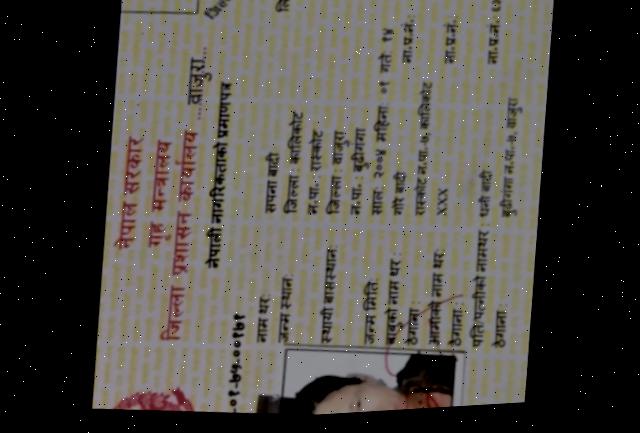 नेपाल सरकार
गृह मन्त्रालय
जिल्ला प्रशासन कार्यालय ...बाजुरा...
नेपाली नागरिकताको प्रमाणपत्र
नाम थर: सपना बादी
जन्म स्थान: जिल्ला : कालिकोट
न.पा.: रास्कोट
स्थायी बासस्थान: जिल्ला : बाजुरा
न.पा.: बुढीगंगा
जन्म मिति: साल: २००४ महिना: ०१ गते १४
बाबुको नाम थर : गोरे बादी ना.प्र.नं.:
ठेगाना : रास्कोट न.पा.-७, कालिकोट
आमाको नाम थर: XXX ना.प्र.नं.:
ठेगाना :
पति/पत्नीको नामथर : धनी बादी ना.प्र.नं.:
ठेगाना : बुढीगंगा न.पा.-७, बाजुरा